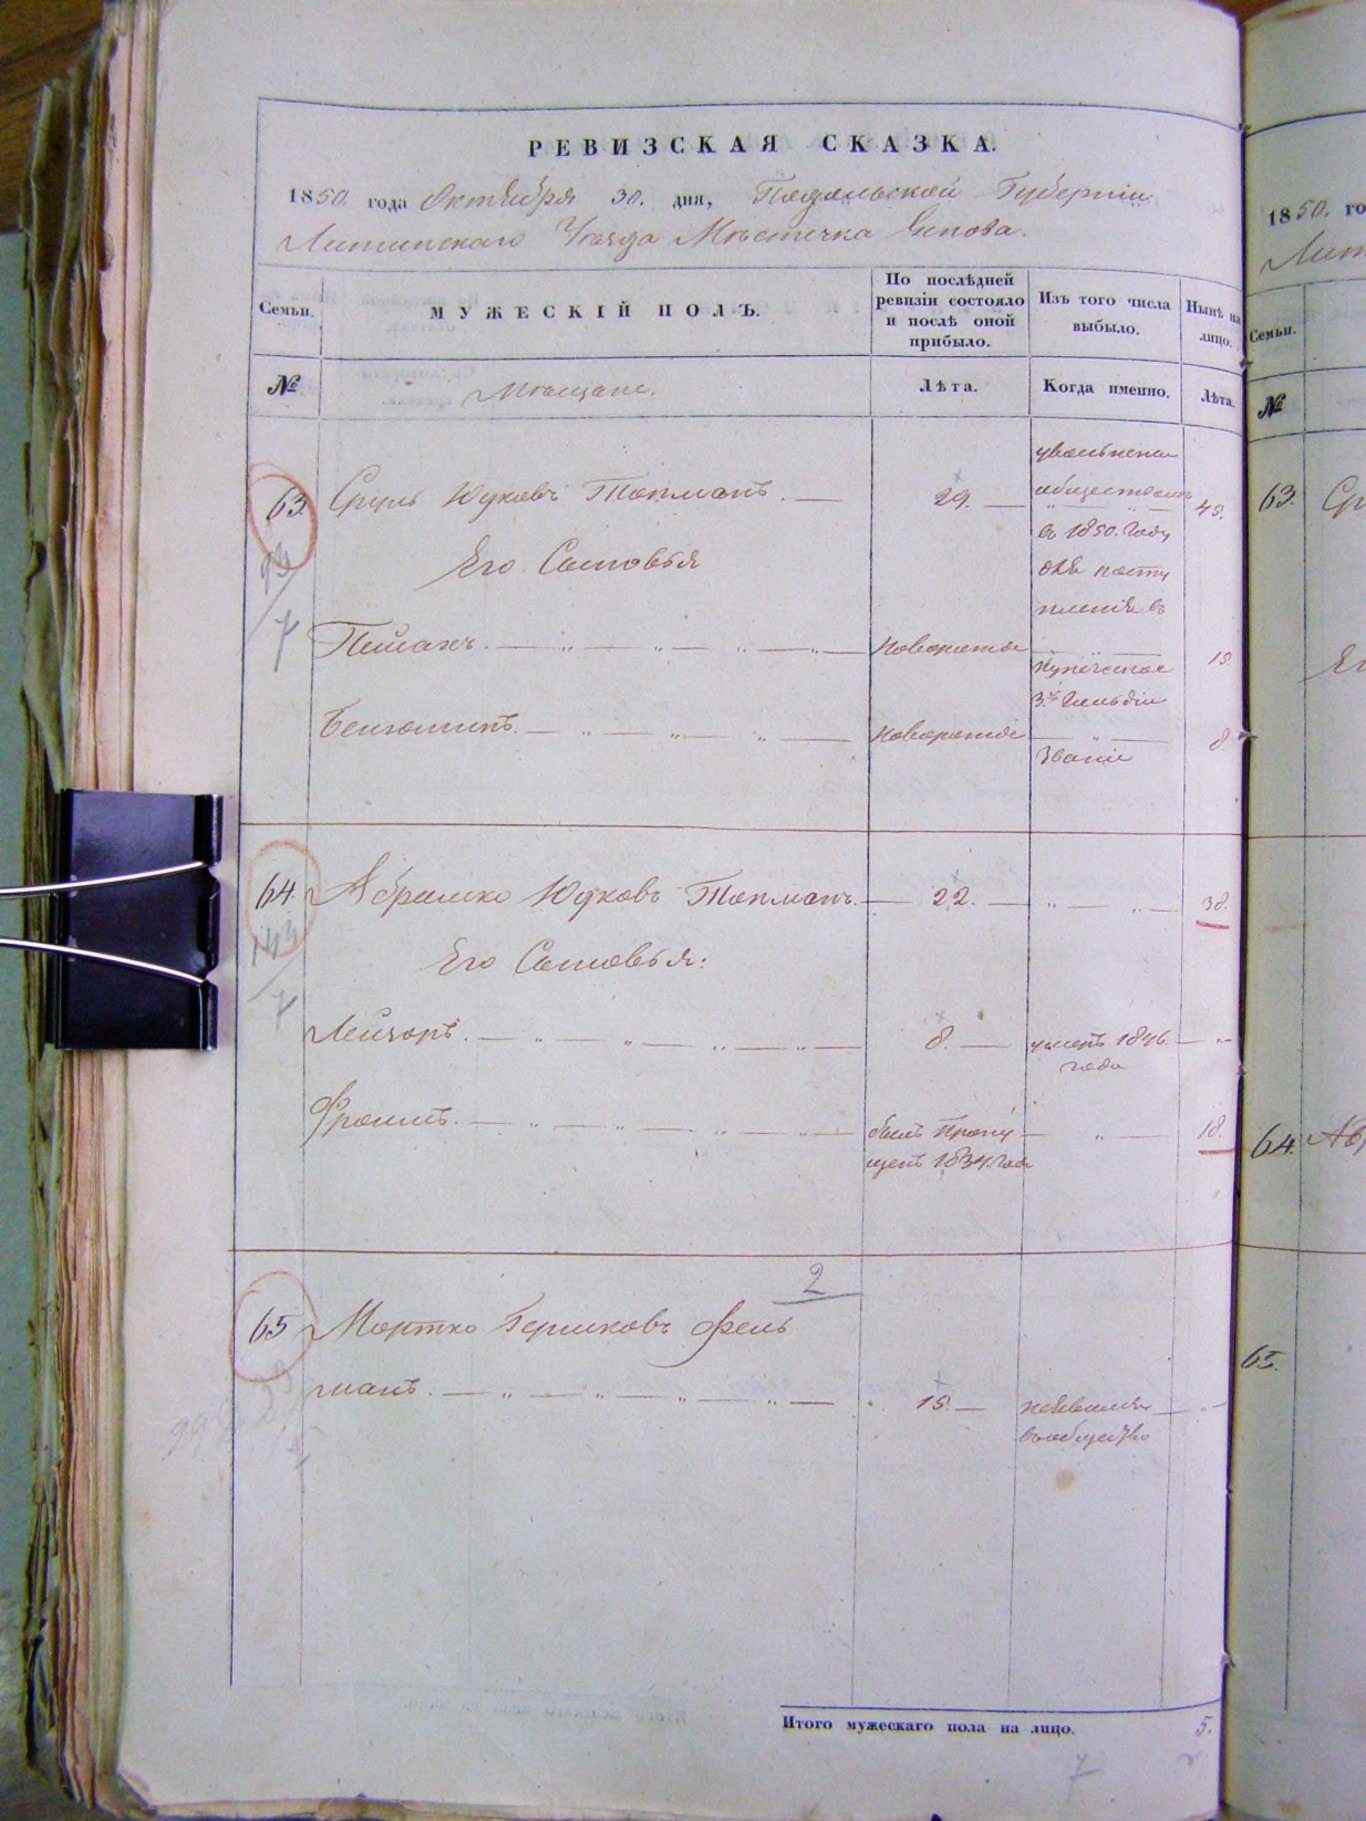 РЕВИЗСКАЯ СКАЗКА.
1850. года Октября 30. дня, Подольской Губерніи
Литинскаго Уѣзда Мѣстечка
Семьи.
МУЖЕСКІЙ ПОЛЪ.
По послѣдней
ревизіи состояло
и послѣ оной
прибыло.
Изъ того числа
выбыло.
Нынѣ на
лицо.
№
Мѣщане.
Лѣта.
Когда именно.
Лѣта.
63. Сруль Юдковъ Топманъ. — 29. — 45.
уволненъ
обществомъ
въ 1850. году
для посту
пленія въ
купеческое
3й Гильдіи
званіе
93/7
Его Сыновья
Пейсахъ. — „ — „ — „ — „ — Новорожде — „ — 15.
Бенюминъ. — „ — „ — „ — Новорожде — „ — 8.
64. Абрамко Юдковъ Топманъ. — 22. — „ — „ — 38.
7
Его Сыновья:
Лейзоръ. — „ — „ — „ — „ — 8. — умеръ 1846. — „ —
года
Фроимъ. — „ — „ — „ — „ — былъ пропу — „ — 18.
щенъ 1834. года
2
65 Мортко Гершковъ Фель
манъ. — „ — „ — „ — „ — 15. — неявился — „ —
въ общество
99
Итого мужескаго пола на лицо. 5.
7
1850. го
Лит
Семьи.
№
63. Ср
Ег
64. Аб
65.